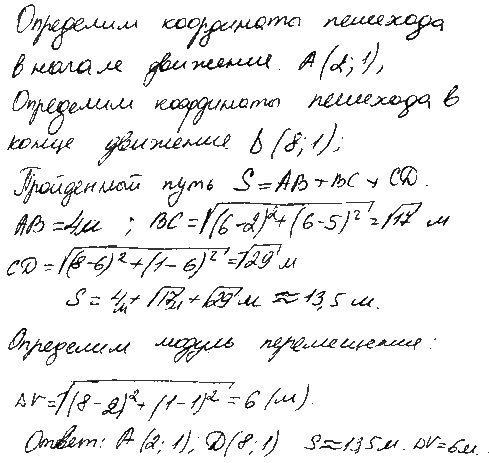 Определим координаты пешехода
в начале движение. A(2;1),
Определим координаты пешехода в
конце движение D(8;1);
Пройденный путь S=AB+BC+CD.
AB=4м ; BC=√(6-2)²+(6-5)²=√17 м
CD=√(8-6)²+(1-6)²=√29 м
S=4м+√17м+√29 м ≈13,5 м.
Определим модуль перемещение:
ΔV=√(8-2)²+(1-1)²=6(м).
Ответ: A(2;1), D(8;1) S≈13,5м. ΔV=6м.